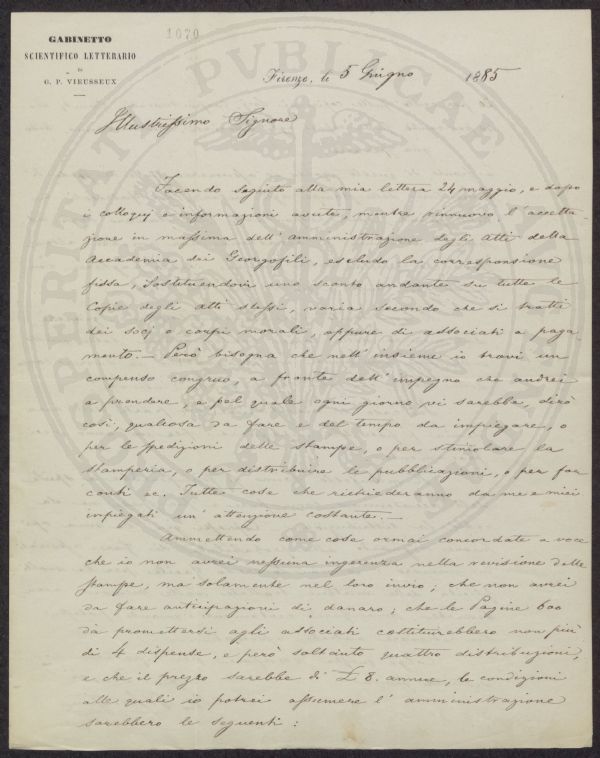 GABINETTO
SCIENTIFICO LETTERARIO
DI
G. P. VIEUSSEUX
1070
Firenze, li 5 Giugno 1885
Illustrissimo Signore
Facendo seguito alla mia lettera 24 maggio, e dopo
i colloquj e informazioni avute, mentre rinnuovo l'accetta-
zione in massima dell'amministrazione degli Atti della
Accademia dei Georgofili, escludo la corresponsione
fissa, sostituendovi uno sconto andante su tutte le
Copie degli atti stessi, varia secondo che si tratti
dei socj o corpi morali, oppure di associati a paga-
mento. — Però bisogna che nell'insieme io trovi un
compenso congruo, a fronte dell'impegno che andrei
a prendere, e pel quale ogni giorno vi sarebbe, dirò
così, qualcosa da fare e del tempo da impiegare, o
per le spedizioni delle stampe, o per stimolare la
stamperia, o per distribuire le pubblicazioni, o per far
conti ec. Tutte cose che richiederanno da me e miei
impiegati un'attenzione costante. —
Ammettendo come cose ormai concordate a voce
che io non avrei nessuna ingerenza nella revisione delle
stampe, ma solamente nel loro invio; che non avrei
da fare anticipazioni di danaro; che le Pagine 600
da promettersi agli associati costituirebbero non più
di 4 dispense, e però soltanto quattro distribuzioni,
e che il prezzo sarebbe di £ 8. annue, le condizioni
alle quali io potrei assumere l'amministrazione
sarebbero le seguenti: